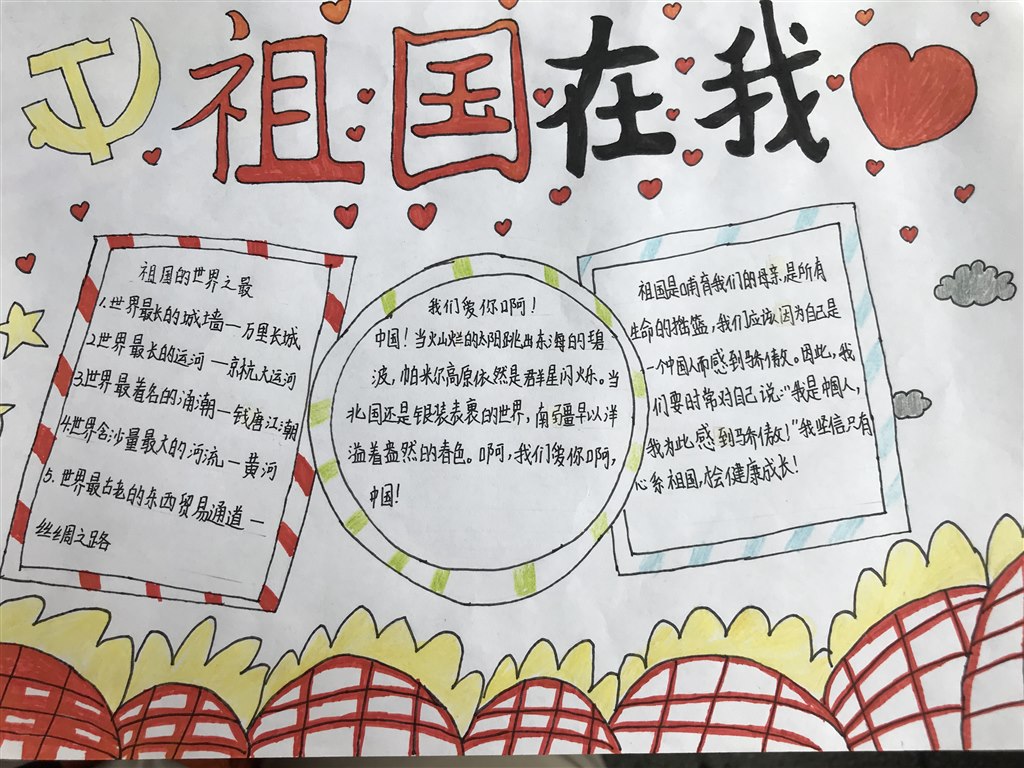 祖国在我
祖国的世界之最
1.世界最长的城墙—万里长城
2世界最长的运河—京杭大运河
3.世界最著名的涌潮—钱唐江潮
4.世界含沙量最大的河流—黄河
5.世界最古老的东西贸易通道—
丝绸之路
我们爱你啊!
中国!当火山烂的太阳跳出东海的碧
波,帕米尔高原依然是群星闪烁。当
北国还是银装素裹的世界,南疆早以洋
溢着盎然的春色。啊,我们爱你啊,
中国!
祖国是哺育我们的母亲,是所有
生命的摇篮,我们应该因为自己是
一个中国人而感到骄傲。因此,我
们要时常对自己说:"我是中国人,
我为此感到骄傲!"我坚信只有
心系祖国,才会健康成长!